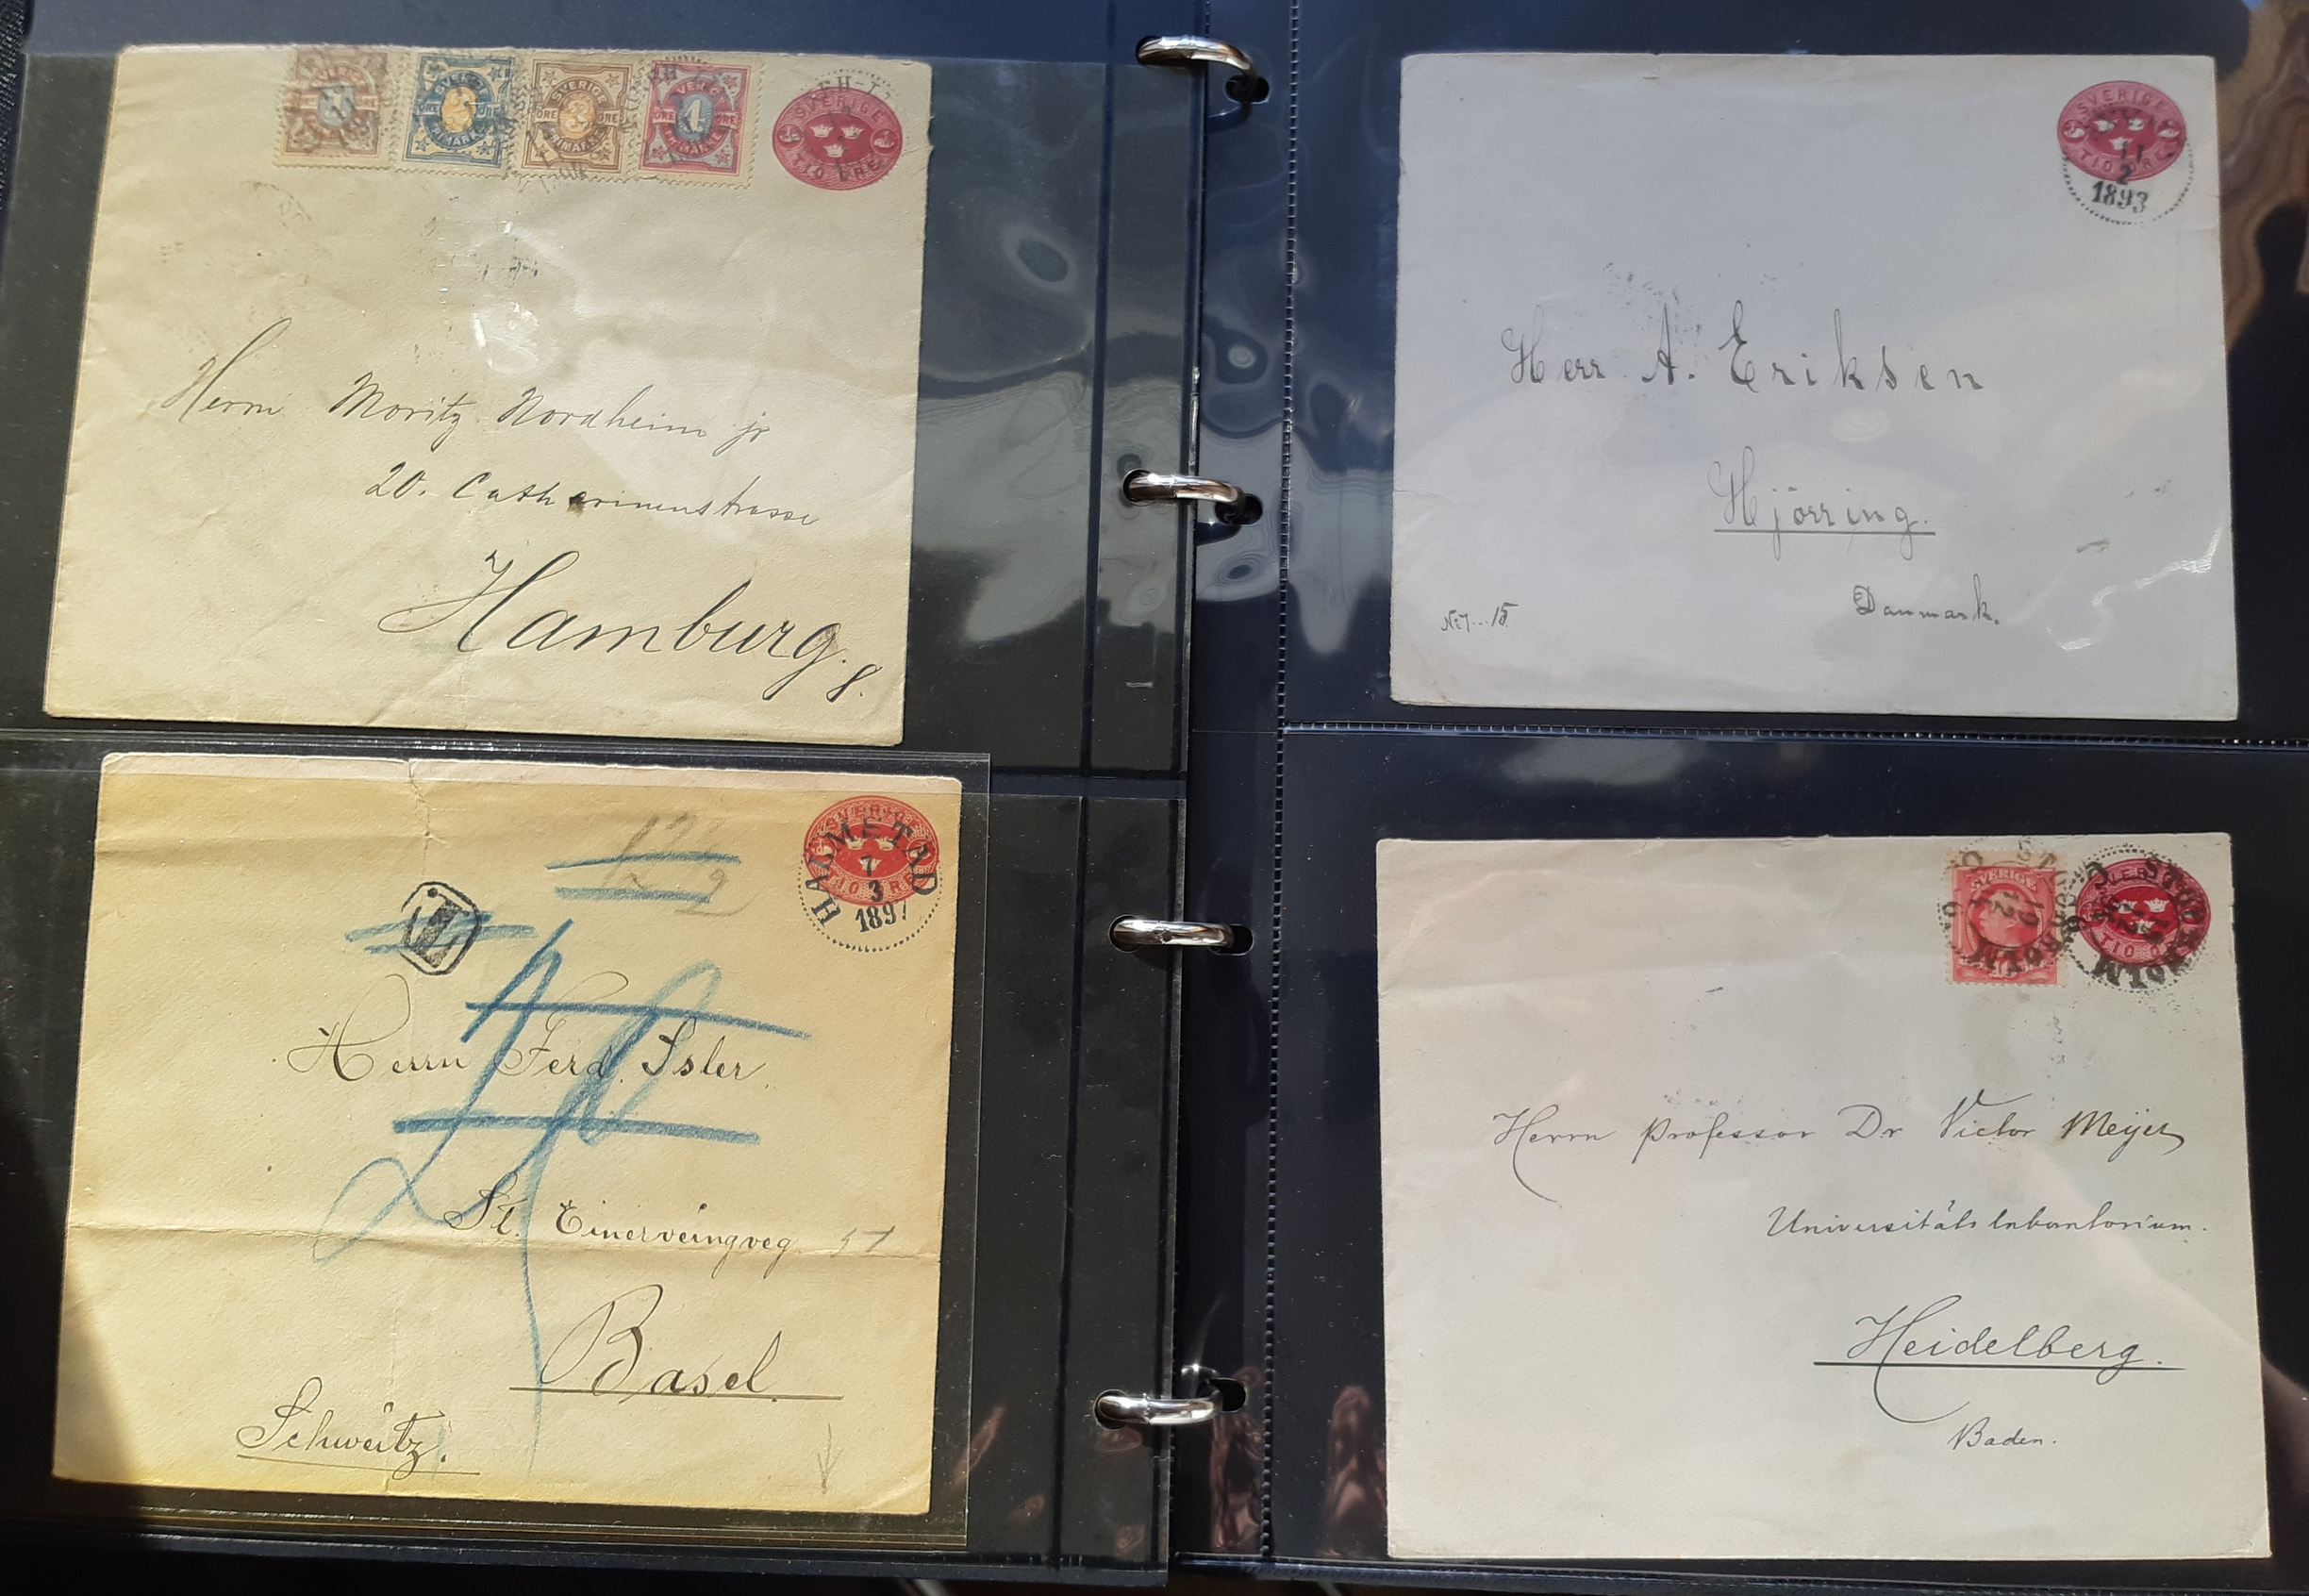 SVERIGE
SVERIGE
SVERIGE
ÖRE ÖRE
FRIMÄRKE
SVERIGE
TIO ÖRE
Herrn Moritz Nordheim jr
20. Catharinenstrasse
Hamburg. 8.
SVERIGE
TIO ÖRE
11
2
1893
Herr A. Eriksen
Hjörring.
Danmark.
SVERIGE
TIO ÖRE
HALMSTAD
7
3
1897
T
Herrn Ferd. Isler.
St. Einerveingveg 51
Basel.
Schweitz.
SVERIGE
STOCKHOLM
TIO ÖRE
STOCKHOLM
Herrn Professor Dr Victor Meyer
Universitäts laboratorium.
Heidelberg.
Baden.